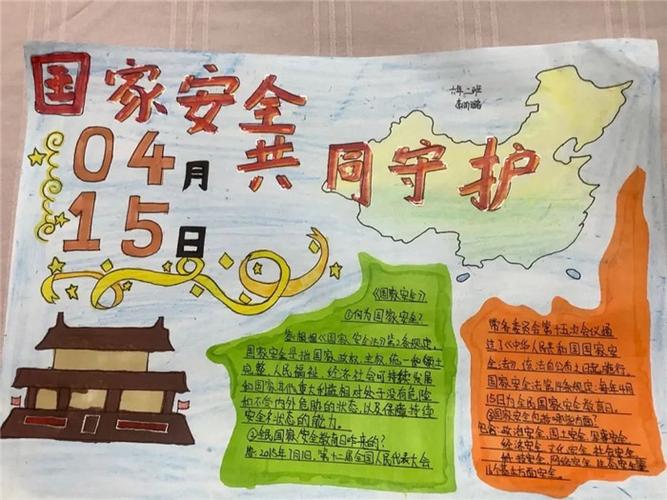 国家安全
共同守护
04月
15日
六年二班
《国家安全》
①何为国家安全?
答:根据《国家安全法》第2条规定,
国家安全是指国家政权、主权、统一和领土
完整、人民福祉、经济社会可持续发展
和国家其他重大利益相对处于没有危险
和不受内外危胁的状态,以及保障持续
安全状态的能力。
②全民国家安全教育日咋来的?
答:2015年7月1日,第十二届全国人民代表大会
常务委员会第十五次会议通
过了《中华人民共和国国家安
全法》,该法自公布之日起施行。
国家安全法第14条规定:每年4月
15日为全民国家安全教育日。
③国家安全包括哪些方面?
包括:政治安全、国土安全、军事安全
经济安全、文化安全、社会安全
安全、网络安全、生态安全等
16个基本方面安全。